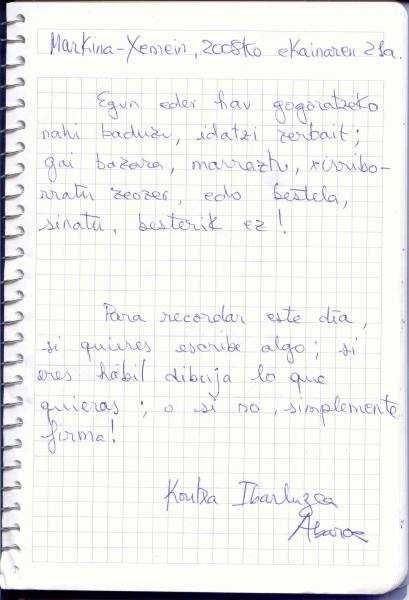 Markina-Xemein, 2008ko ekainaren 21a.
Egun eder hau gogoratzeko
nahi baduzu, idatzi zerbait;
gai bazara, marraztu, xirribo-
rratu zeozer, edo bestela,
sinatu, besterik ez!
Para recordar este día,
si quieres escribe algo; si
eres hábil dibuja lo que
quieras; o si no, simplemente
firma!
Koutxa Ibarluzea